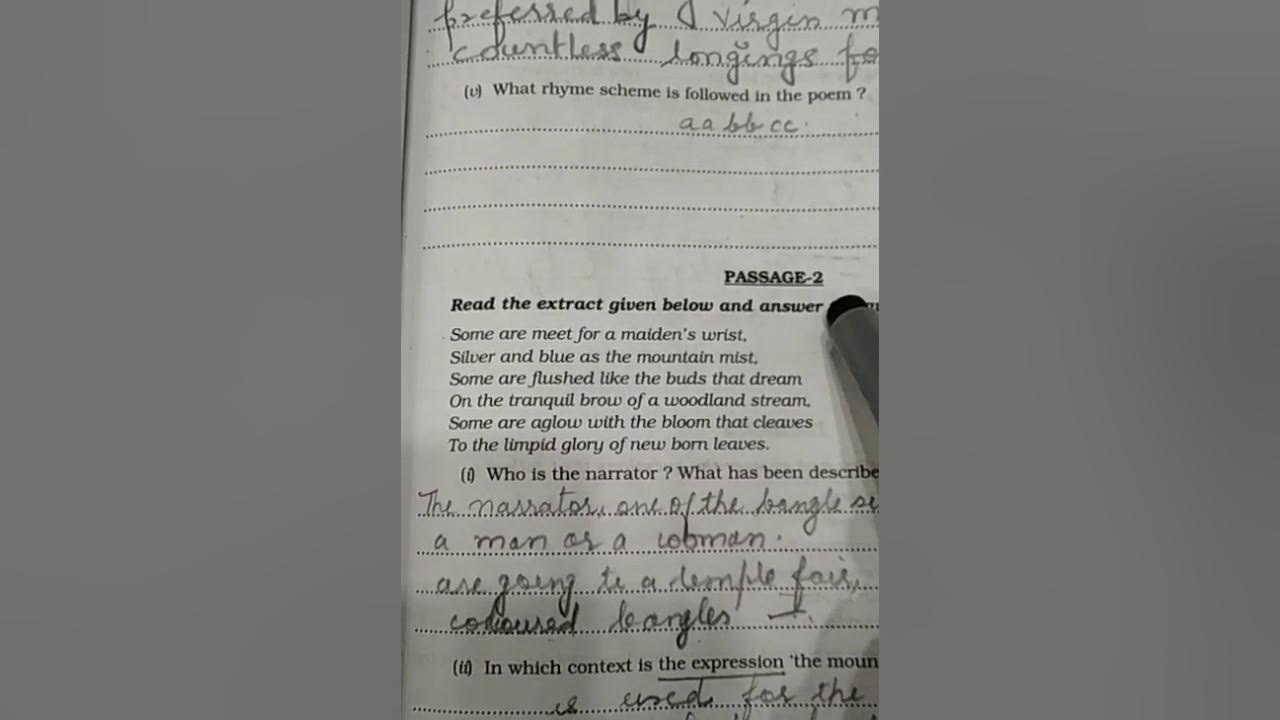 preferred by virgin m
countless longings fo
(v) What rhyme scheme is followed in the poem ?
aa bb cc.
PASSAGE-2
Read the extract given below and answer
Some are meet for a maiden's wrist,
Silver and blue as the mountain mist,
Some are flushed like the buds that dream
On the tranquil brow of a woodland stream,
Some are aglow with the bloom that cleaves
To the limpid glory of new born leaves.
(i) Who is the narrator ? What has been describe
The narrator, one of the bangle se
a man or a woman.
are going to a temple fair,
coloured bangles
(ii) In which context is the expression 'the moun
is used for the